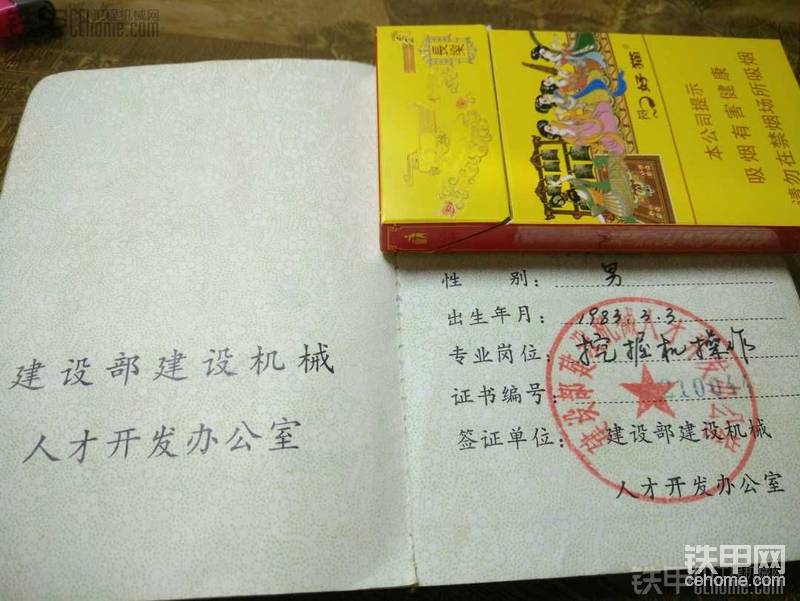 cehome.com
長樂
好猫
本公司提示
吸烟有害健康
请勿在禁烟场所吸烟
建设部建设机械
人才开发办公室
性 别： 男
出生年月：1983.3.3
专业岗位：挖掘机操作
证书编号：
签证单位：建设部建设机械
人才开发办公室
铁甲网
cehome.com